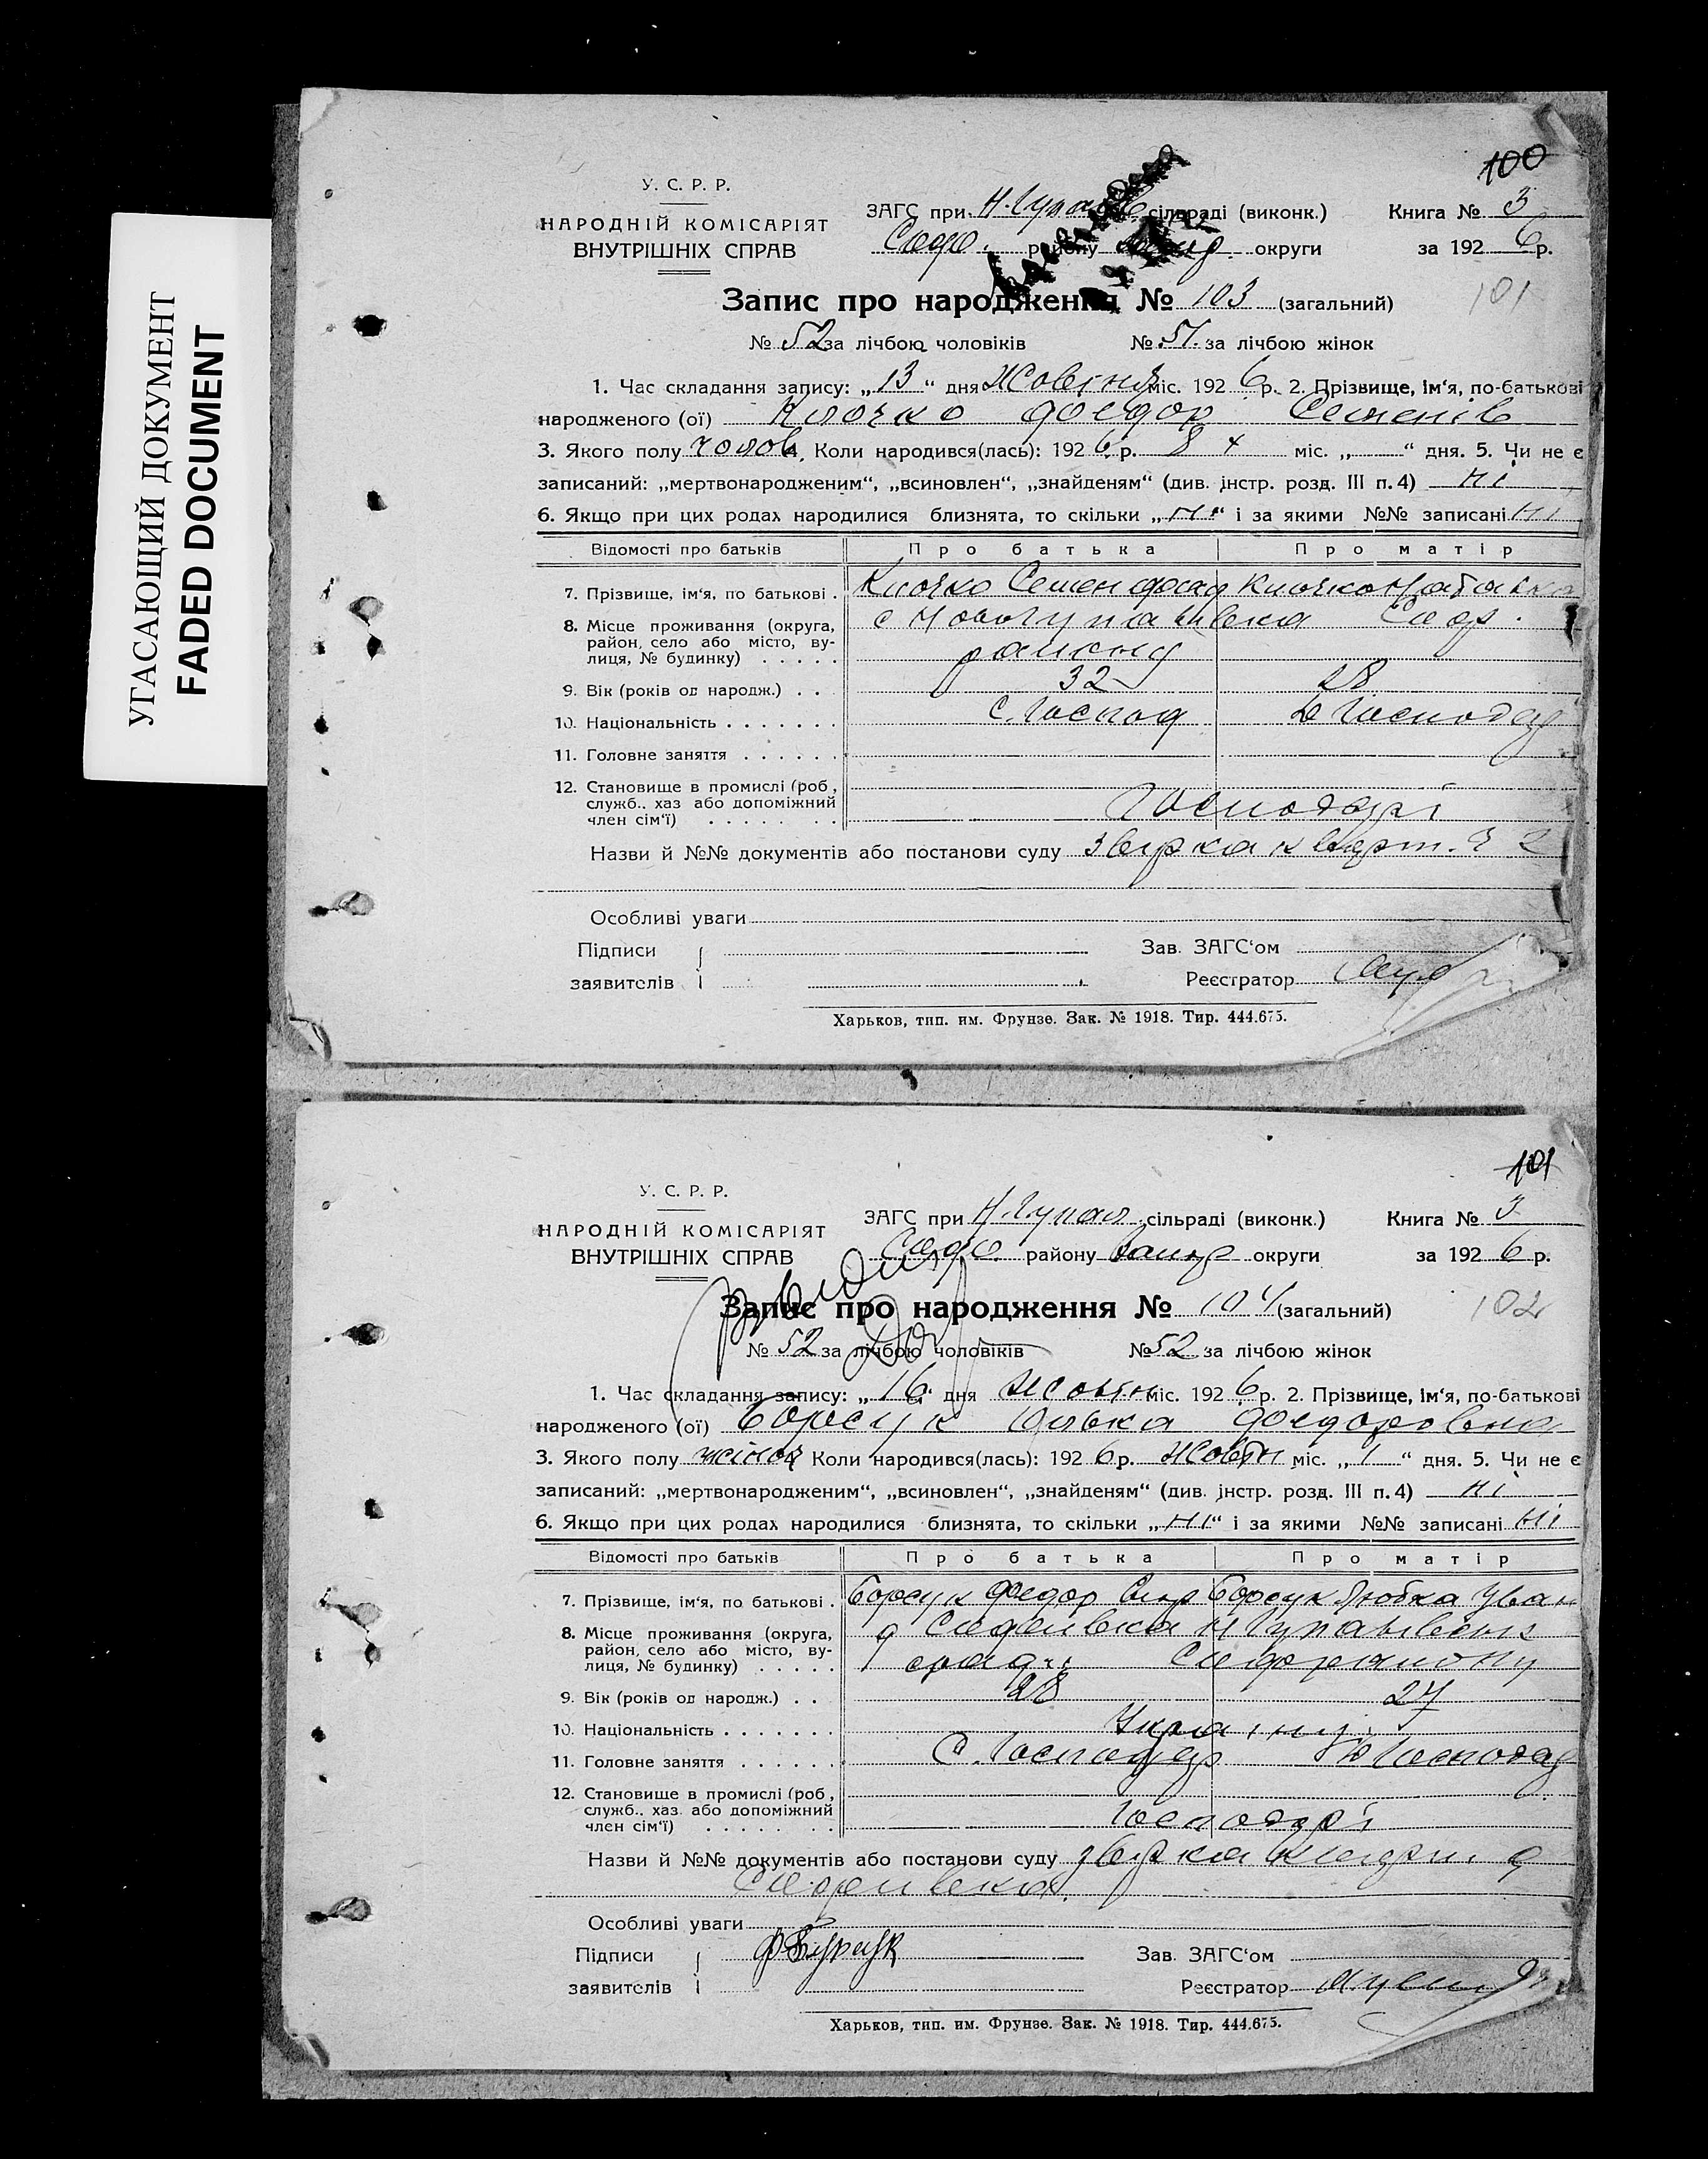 УГАСАЮЩИЙ ДОКУМЕНТ
FADED DOCUMENT
100
У. С. Р. Р.
НАРОДНІЙ КОМІСАРІЯТ
ВНУТРІШНІХ СПРАВ
ЗАГС при Н. Гупал сільраді (виконк.) Книга № 3
Софо. району округи за 192 6 р.
Запис про народження № 103 (загальний)
101
№ 52 за лічбою чоловіків № 51. за лічбою жінок
1. Час складання запису: „ 13 “ дня Жовтня міс. 192 6 р. 2. Прізвище, ім‘я, по-батькові
народженого (ої) Клочко Фёдор Семенів
3. Якого полу чолов 4. Коли народився(лась): 192 6 р. 8 х міс. „ “ дня. 5. Чи не є
записаний: „мертвонародженим“, „всиновлен“, „знайденям“ (див. інстр. розд. III п. 4) Ні
6. Якщо при цих родах народилися близнята, то скільки „ Ні “ і за якими №№ записані Ні
Відомості про батьків Про батька Про матір
7. Прізвище, ім‘я, по батькові . Клочко Семен Клочко Наталка
8. Місце проживання (округа, район, село або місто, вулиця, № будинку) . . . . . с Новогупалівка Соф.
району
9. Вік (років од народж.) . . 32 28
10. Національність . . . . . . . С. Господ Д Господар
11. Головне заняття . . . . . .
12. Становище в промислі (роб., служб., хаз або допоміжний член сім‘ї) . . . . . . . . Господарі
Назви й №№ документів або постанови суду звірка кварт. 2
Особливі уваги
Підписи Зав. ЗАГС‘ом
заявителів Реєстратор
Харьков, тип. им. Фрунзе. Зак. № 1918. Тир. 444.675.
101
У. С. Р. Р.
НАРОДНІЙ КОМІСАРІЯТ
ВНУТРІШНІХ СПРАВ
ЗАГС при Н. Гупал. сільраді (виконк.) Книга № 3
Софо. району Запор округи за 192 6 р.
Запис про народження № 104 (загальний)
102
№ 52 за лічбою чоловіків № 52 за лічбою жінок
1. Час складання запису: „ 16 “ дня Жовтн міс. 192 6 р. 2. Прізвище, ім‘я, по-батькові
народженого (ої) Борсук Юлька Федоровна
3. Якого полу жіноч 4. Коли народився(лась): 192 6 р. Жовтн міс. „ 1 “ дня. 5. Чи не є
записаний: „мертвонародженим“, „всиновлен“, „знайденям“ (див. інстр. розд. III п. 4) Ні
6. Якщо при цих родах народилися близнята, то скільки „ Ні “ і за якими №№ записані Ні
Відомості про батьків Про батька Про матір
7. Прізвище, ім‘я, по батькові . Борсук Федор Борсук Любка Иван
8. Місце проживання (округа, район, село або місто, вулиця, № будинку) . . . . . Н Гупалівськ
Соф району
9. Вік (років од народж.) . . 28 27
10. Національність . . . . . . . Україн
11. Головне заняття . . . . . . С. Господар Д Господар
12. Становище в промислі (роб., служб., хаз. або допоміжний член сім‘ї) . . . . . . . . Господарі
Назви й №№ документів або постанови суду звірка кварт.
Особливі уваги
Підписи Зав. ЗАГС‘ом
заявителів Реєстратор
Харьков, тип. им. Фрунзе. Зак. № 1918. Тир. 444.675.